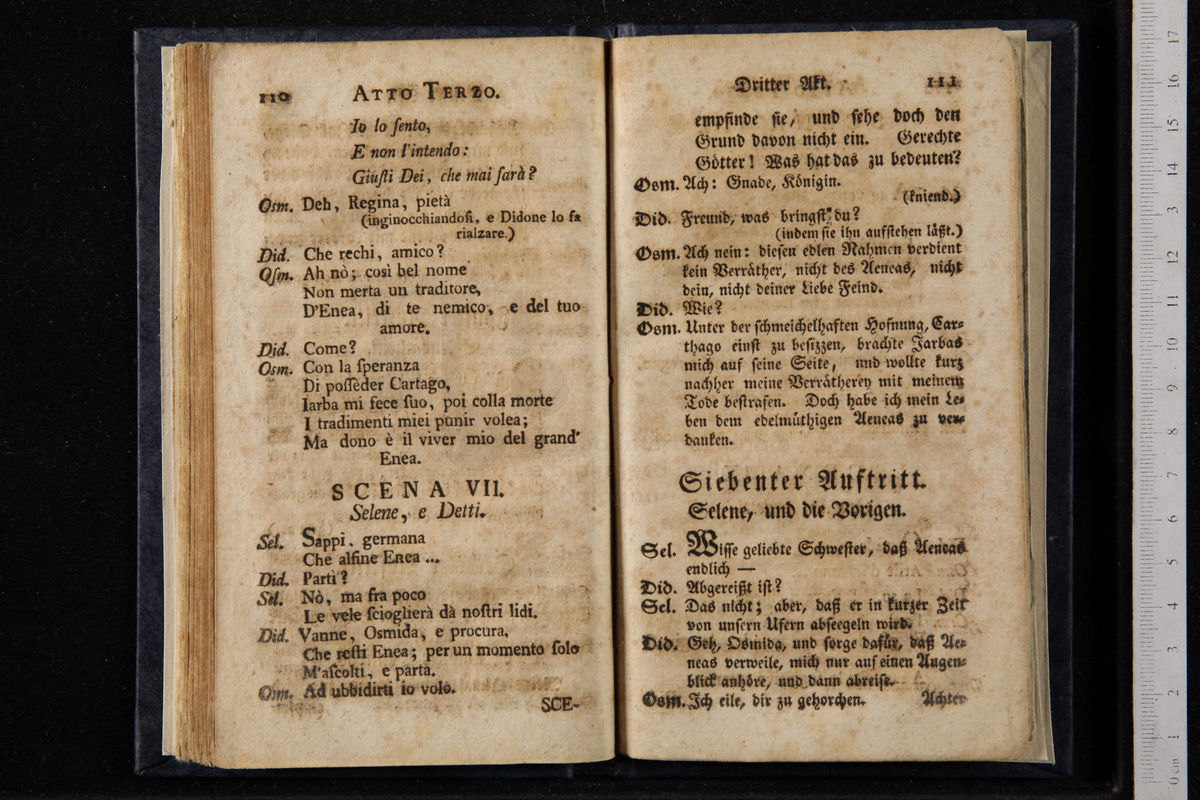 110 ATTO TERZO.
Io lo ſento,
E non l'intendo:
Giuſti Dei, che mai ſarà?
Osm. Deh, Regina, pietà
(inginocchiandoſi, e Didone lo fa
rialzare.)
Did. Che rechi, amico?
Osm. Ah nò; così bel nome
Non merta un traditore,
D'Enea, di te nemico, e del tuo
amore.
Did. Come?
Osm. Con la ſperanza
Di poſſeder Cartago,
Iarba mi fece ſuo, poi colla morte
I tradimenti miei punir volea;
Ma dono è il viver mio del grand'
Enea.
SCENA VII.
Selene, e Detti.
Sel. Sappi, germana
Che alfine Enea ...
Did. Partì?
Sel. Nò, ma fra poco
Le vele ſcioglierà dà noſtri lidi.
Did. Vanne, Osmida, e procura,
Che reſti Enea; per un momento ſolo
M'aſcolti, e parta.
Osm. Ad ubbidirti io volo.
SCE-
Dritter Akt. 111
empfinde ſie, und ſehe doch den
Grund davon nicht ein. Gerechte
Götter! Was hat das zu bedeuten?
Osm. Ach: Gnade, Königin.
(kniend.)
Did. Freund, was bringſt du?
(indem ſie ihn aufſtehen läßt.)
Osm. Ach nein: dieſen edlen Nahmen verdient
kein Verräther, nicht des Aeneas, nicht
dein, nicht deiner Liebe Feind.
Did. Wie?
Osm. Unter der ſchmeichelhaften Hofnung, Car-
thago einſt zu beſizzen, brachte Jarbas
mich auf ſeine Seite, und wollte kurz
nachher meine Verrätherey mit meinem
Tode beſtrafen. Doch habe ich mein Le-
ben dem edelmüthigen Aeneas zu ver-
danken.
Siebenter Auftritt.
Selene, und die Vorigen.
Sel. Wiſſe geliebte Schweſter, daß Aeneas
endlich —
Did. Abgereißt iſt?
Sel. Das nicht; aber, daß er in kurzer Zeit
von unſern Ufern abſeegeln wird.
Did. Geh, Osmida, und ſorge dafür, daß Ae-
neas verweile, mich nur auf einen Augen-
blick anhöre, und dann abreiſe.
Osm. Ich eile, dir zu gehorchen. Achter
0 cm 1 2 3 4 5 6 7 8 9 10 11 12 13 14 15 16 17